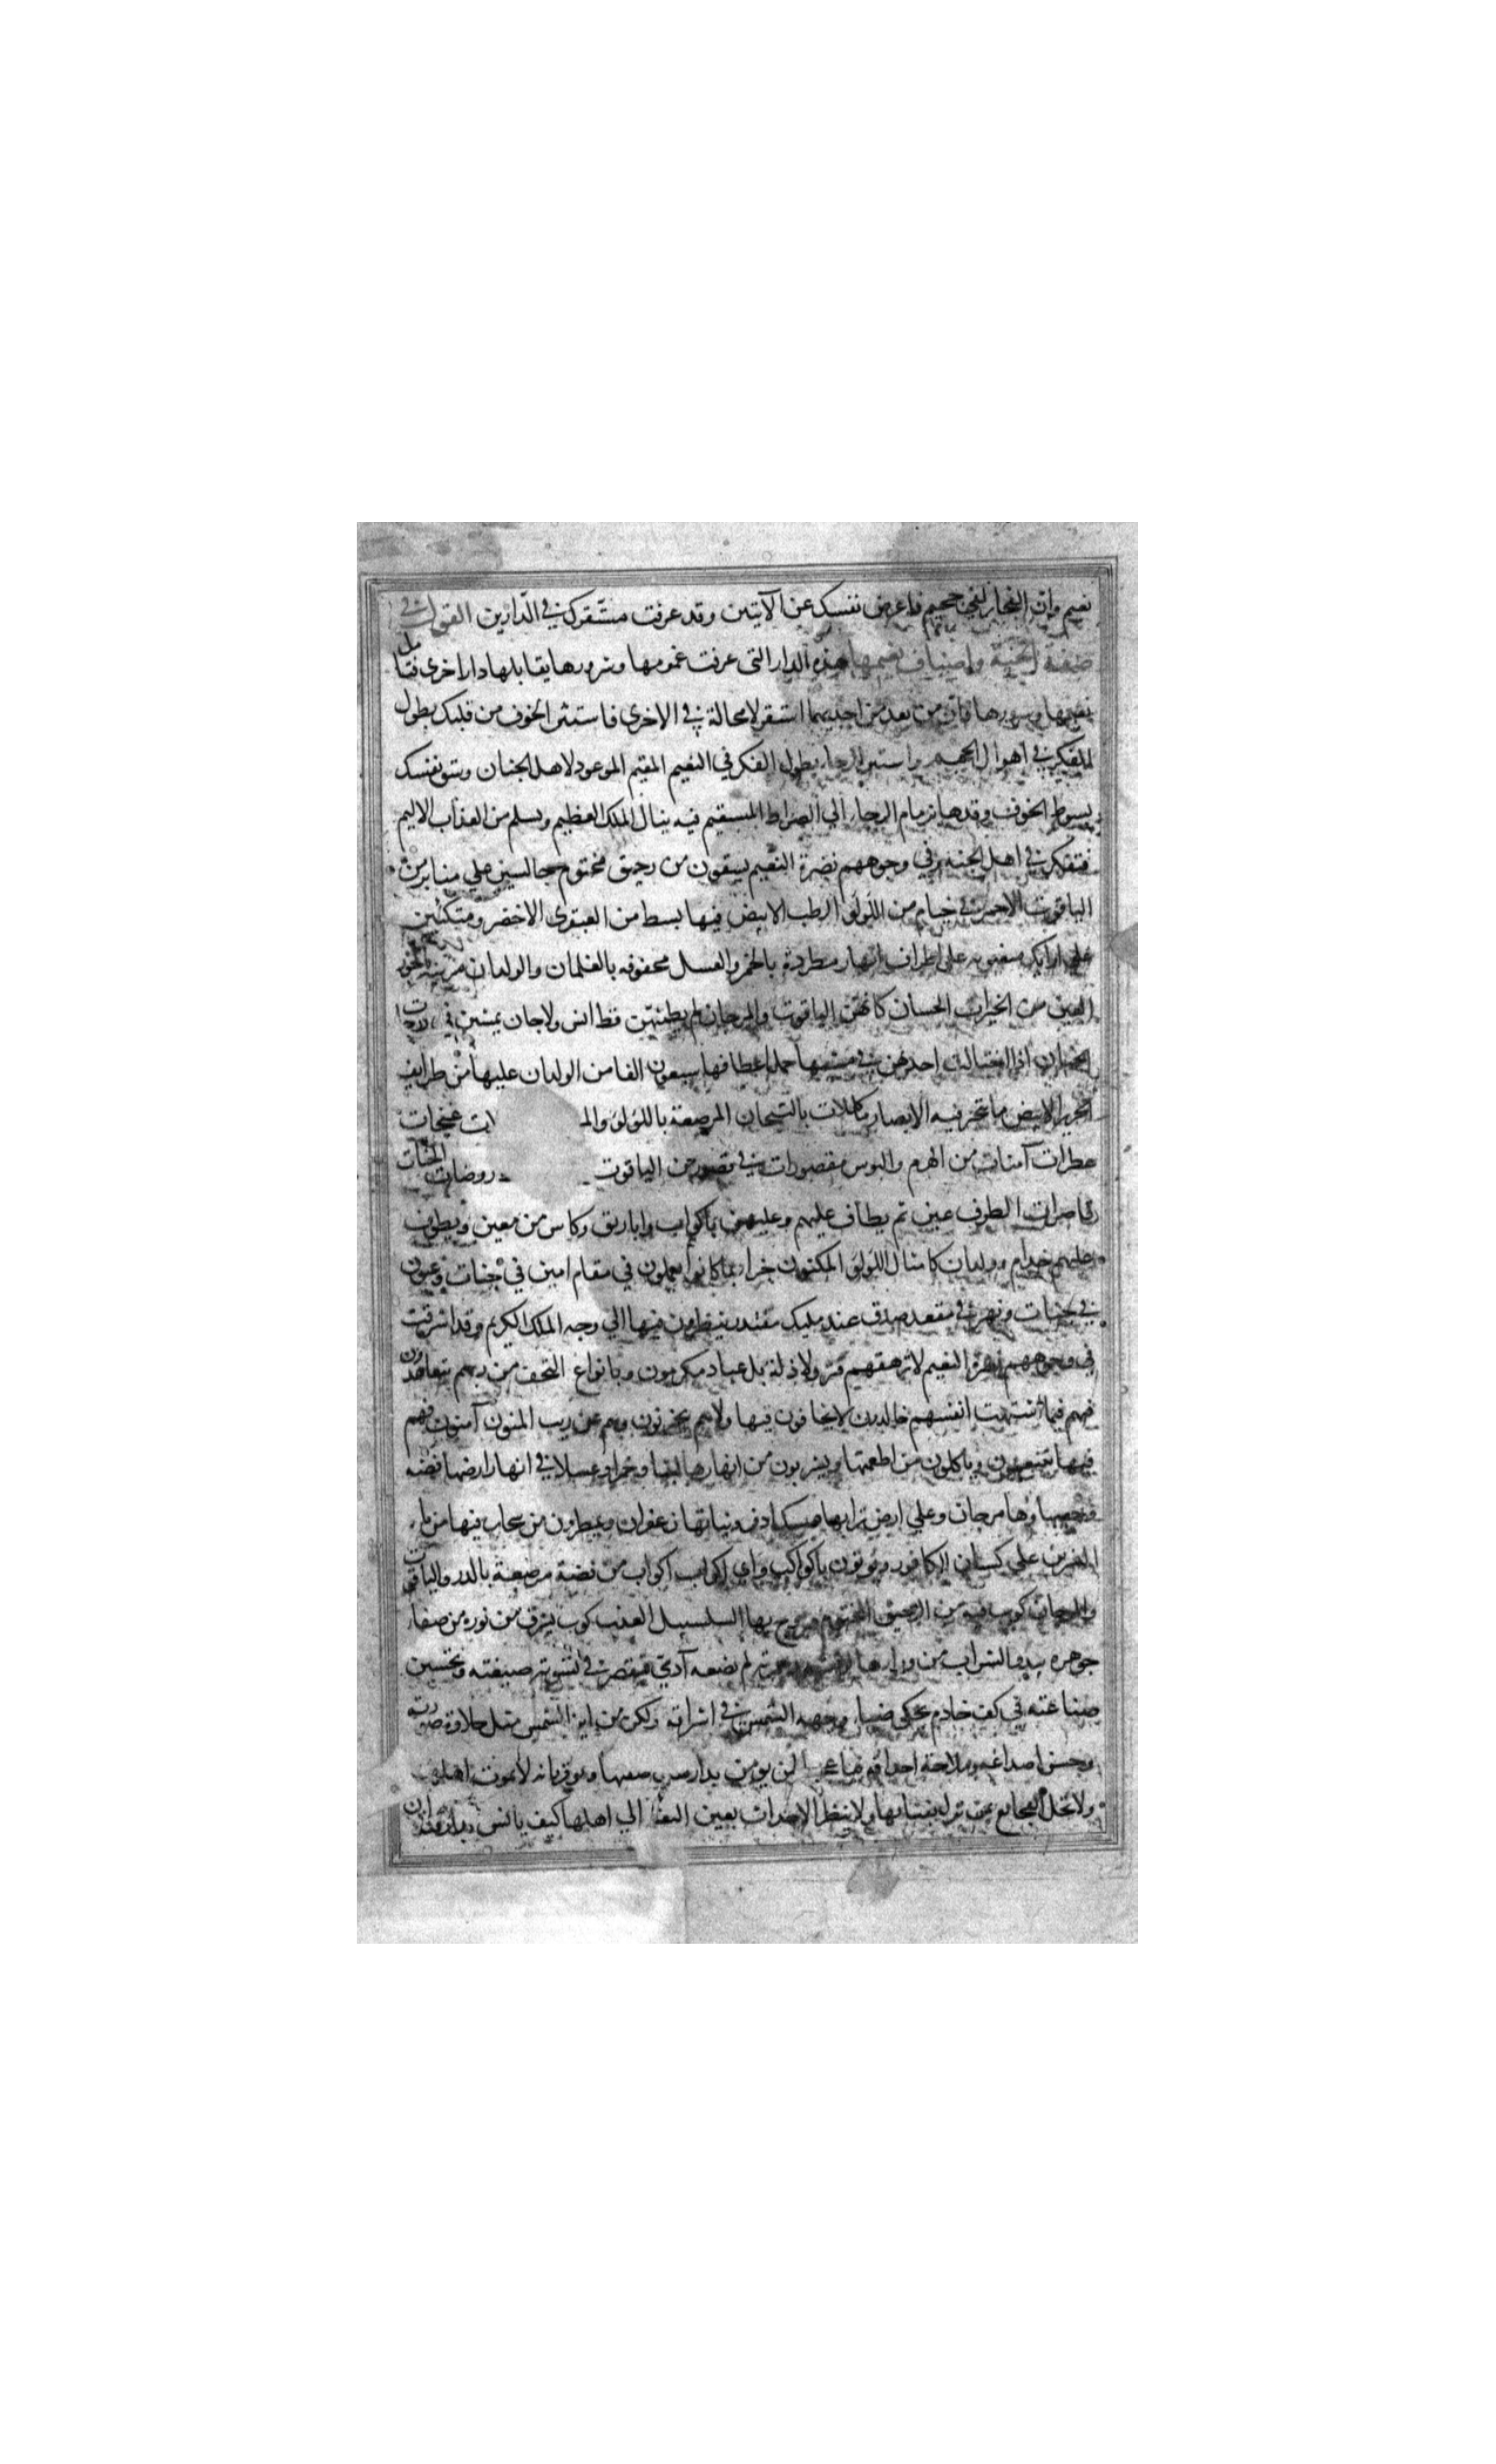 نعيم وان الفجار لفي جحيم فاعرض نفسك عن الآيتين وقد عرفت مستقرك في الدارين القول في
صفة الجنة واصناف نعيمها هذه الدار التي عرفت غمومها وسرورها يقابلها دار اخرى فتامل
نعيمها وسرورها فان من بعد من احديهما استقر لا محالة في الاخرى فاستثر الخوف من قلبك بطول
الفكر في اهوال الجحيم واستثر الرجاء بطول الفكر في النعيم المقيم الموعود لاهل الجنان وسق نفسك
بسوط الخوف وقدها بزمام الرجاء الي الصراط المستقيم فبه ينال الملك العظيم ويسلم من العذاب الاليم
فتفكر في اهل الجنة وفي وجوههم نضرة النعيم يسقون من رحيق مختوم جالسين علي منابر من
الياقوت الاحمر في خيام من اللؤلؤ الرطب الابيض فيها بسط من العبقري الاخضر ومتكئين
علي ارايك منصوبه على اطراف انهار مطردة بالخمر والعسل محفوفه بالغلمان والولدان مزينه بالحور
العين من الخيرات الحسان كانهن الياقوت والمرجان لم يطمثهن قط انس ولا جان يمشين في درجات
الجنان اذا اختالت احديهن في مشيها حمل اعطافها سبعون الفا من الولدان عليها من طرايف
الحرير الابيض ما تتحير فيه الابصار مكللات بالتيجان المرصعة باللؤلؤ والمـ ات غنجات
عطرات آمنات من الهرم والبوس مقصورات في قصور من الياقوت روضات الجنات
قاصرات الطرف عين ثم يطاف عليهم وعليهن باكواب واباريق وكاس من معين ويطوف
عليهم خدام وولدان كامثال اللؤلؤ المكنون جزاء بما كانوا يعملون في مقام امين في جنات وعيون
في جنات ونهر في مقعد صدق عند مليك مقتدر ينظرون فيها الي وجه الملك الكريم وقد اشرقت
في وجوههم نضرة النعيم لا يرهقهم قتر ولا ذلة بل عباد مكرمون وبانواع التحف من ربهم يتعاهدون
فهم فيما اشتهت انفسهم خالدون لا يخافون فيها ولا هم يحزنون وهم عن ريب المنون آمنون فهم
فيها يتنعمون وياكلون من اطعمتها ويشربون من انهارها لبنا وخمرا وعسلا في انهار ارضها فضه
وحصباؤها مرجان وعلي ارض ترابها مسك اذفر ونباتها زعفران ويمطرون من سحاب فيها من ماء
النسرين علي كثبان الكافور ويوتون باكواب واي اكواب اكواب من فضة مرصعة بالدر والياقوت
والمرجان كوب فيه من الرحيق المختوم ممزوج بها السلسبيل العذب كوب يشرق من نوره من صفاء
جوهره يبدو الشراب من ورايه لم يصنعه آدمي فيقصر في تسوية صنعته وتحسين
صناعته في كف خادم يحكي ضياء وجهه الشمس في اشراقه ولكن من اين للشمس مثل حلاوة صورته
وحسن اصداغه وملاحة احداقه فيا عجبا لمن يومن بدار هذه صفتها ويوقن بانه لا يموت اهلها
ولا تحل الفجايع بمن نزل بفنايها ولا ينظر الاحداث بعين التغير الي اهلها كيف يانس بدار قد اذن